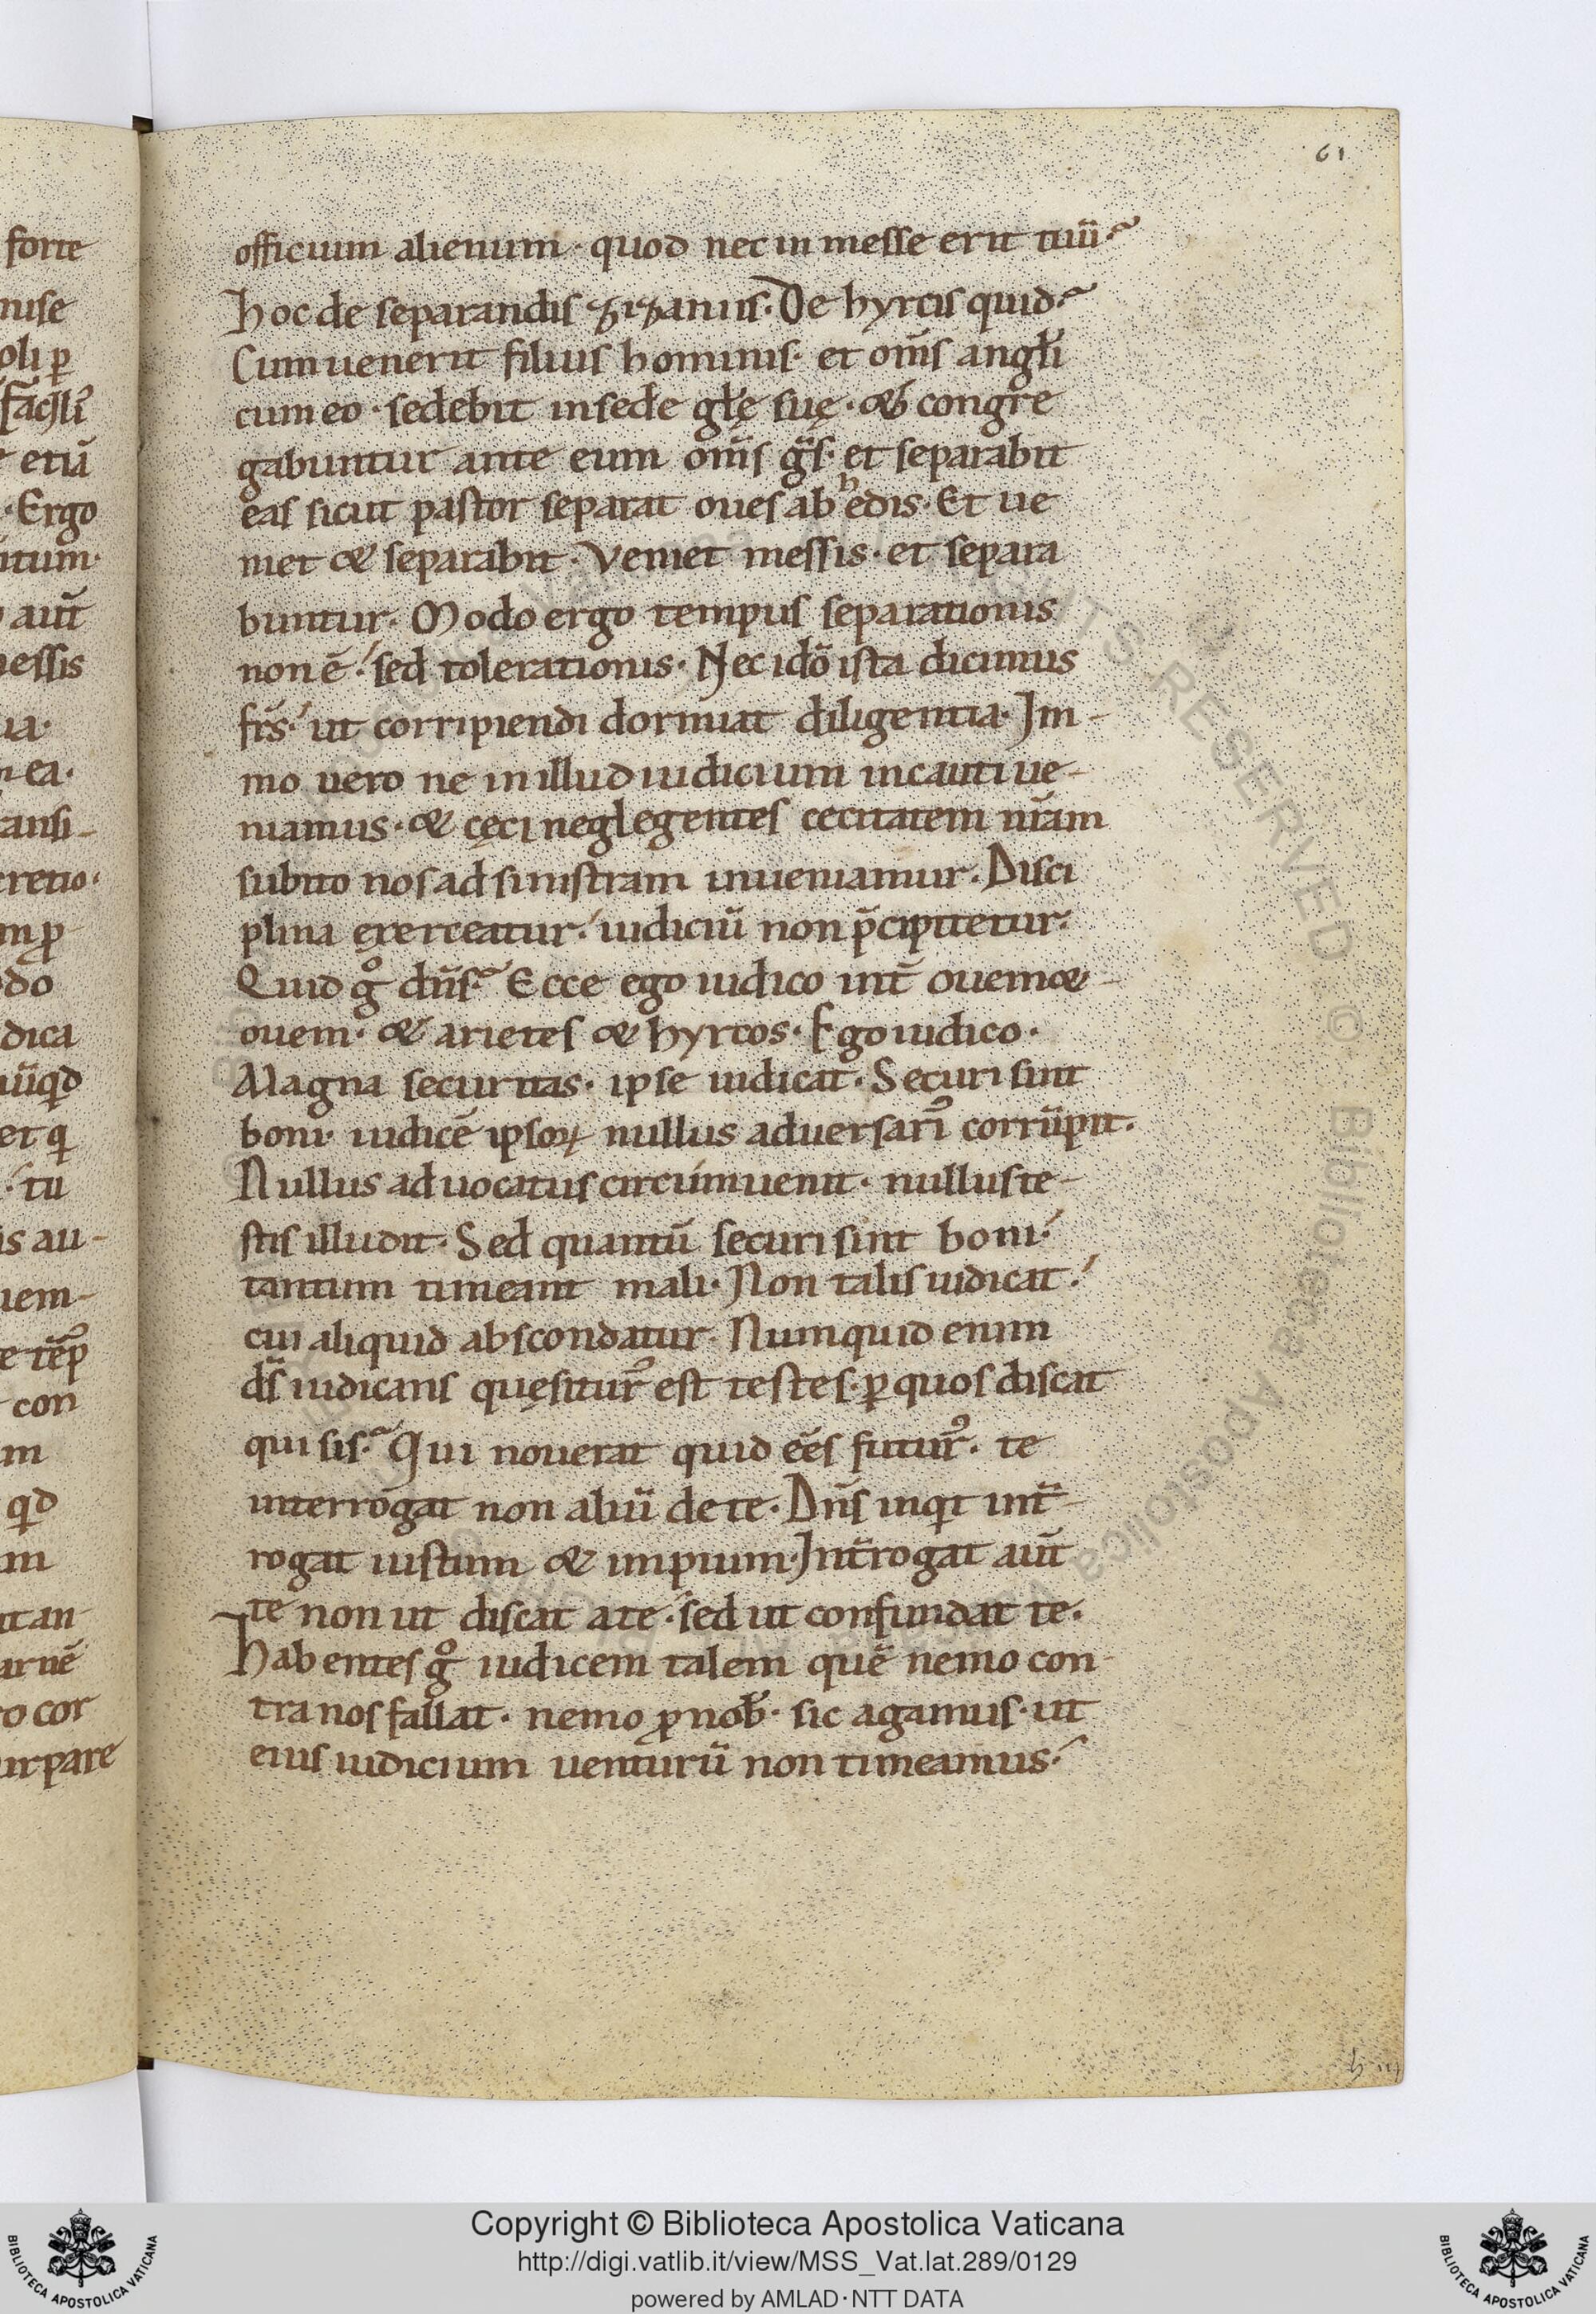 61
officium alienum · quod nec in messe erit tuū·
Hoc de separandis zizaniis. De hyrcis quid·
Cum uenerit filius hominis · et om̄s angłi
cum eo · sedebit in sede głę suę · & congre
gabuntur ante eum om̄s g̅s · et separabit
eas sicut pastor separat oues ab hedis · Et ue
niet & separabit · Veniet messis · et separa
buntur · Modo ergo tempus separationis
non ē · sed tolerationis · Nec idō ista dicimus
fr̄s · ut corripiendi dormiat diligentia · Im-
mo uero ne in illud iudicium incauti ue-
niamus · & cęci neglegentes cecitatem nr̄am
subito nos ad sinistram inueniamur · Disci
plina exerceatur · iudiciū non p̄cipitetur ·
Quid g̊ dn̄s · Ecce ego iudico int̄ ouem &
ouem · & arietes & hyrcos · Ego iudico ·
Magna securitas · ipse iudicat · Securi sint
boni · iudicē ipsoꝝ nullus aduersariꝰ corrūpit ·
Nullus aduocatus circumuenit · nullus te-
stis illudit · Sed quantū securi sint boni ·
tantum timeant mali · Non talis iudicat ·
cui aliquid abscondatur · Numquid enim
ds̄ iudicans quęsiturꝰ est testes · ꝑ quos discat
qui sis · Qui nouerat quid eēs futurꝰ · te
interrogat non aliū de te · Dn̄s inqt int̄
rogat iustum & impium · Int̄rogat aut̄
te non ut discat a te · sed ut confundat te ·
Habentes g̊ iudicem talem quē nemo con-
tra nos fallat · nemo ꝓ nob̄ · sic agamus · ut
eius iudicium uenturū non timeamus ·
forte
etiā
· Ergo
itum ·
aut̄
essis
dica
· tu
con
Copyright © Biblioteca Apostolica Vaticana
http://digi.vatlib.it/view/MSS_Vat.lat.289/0129
powered by AMLAD · NTT DATA
BIBLIOTECA APOSTOLICA VATICANA
BIBLIOTECA APOSTOLICA VATICANA